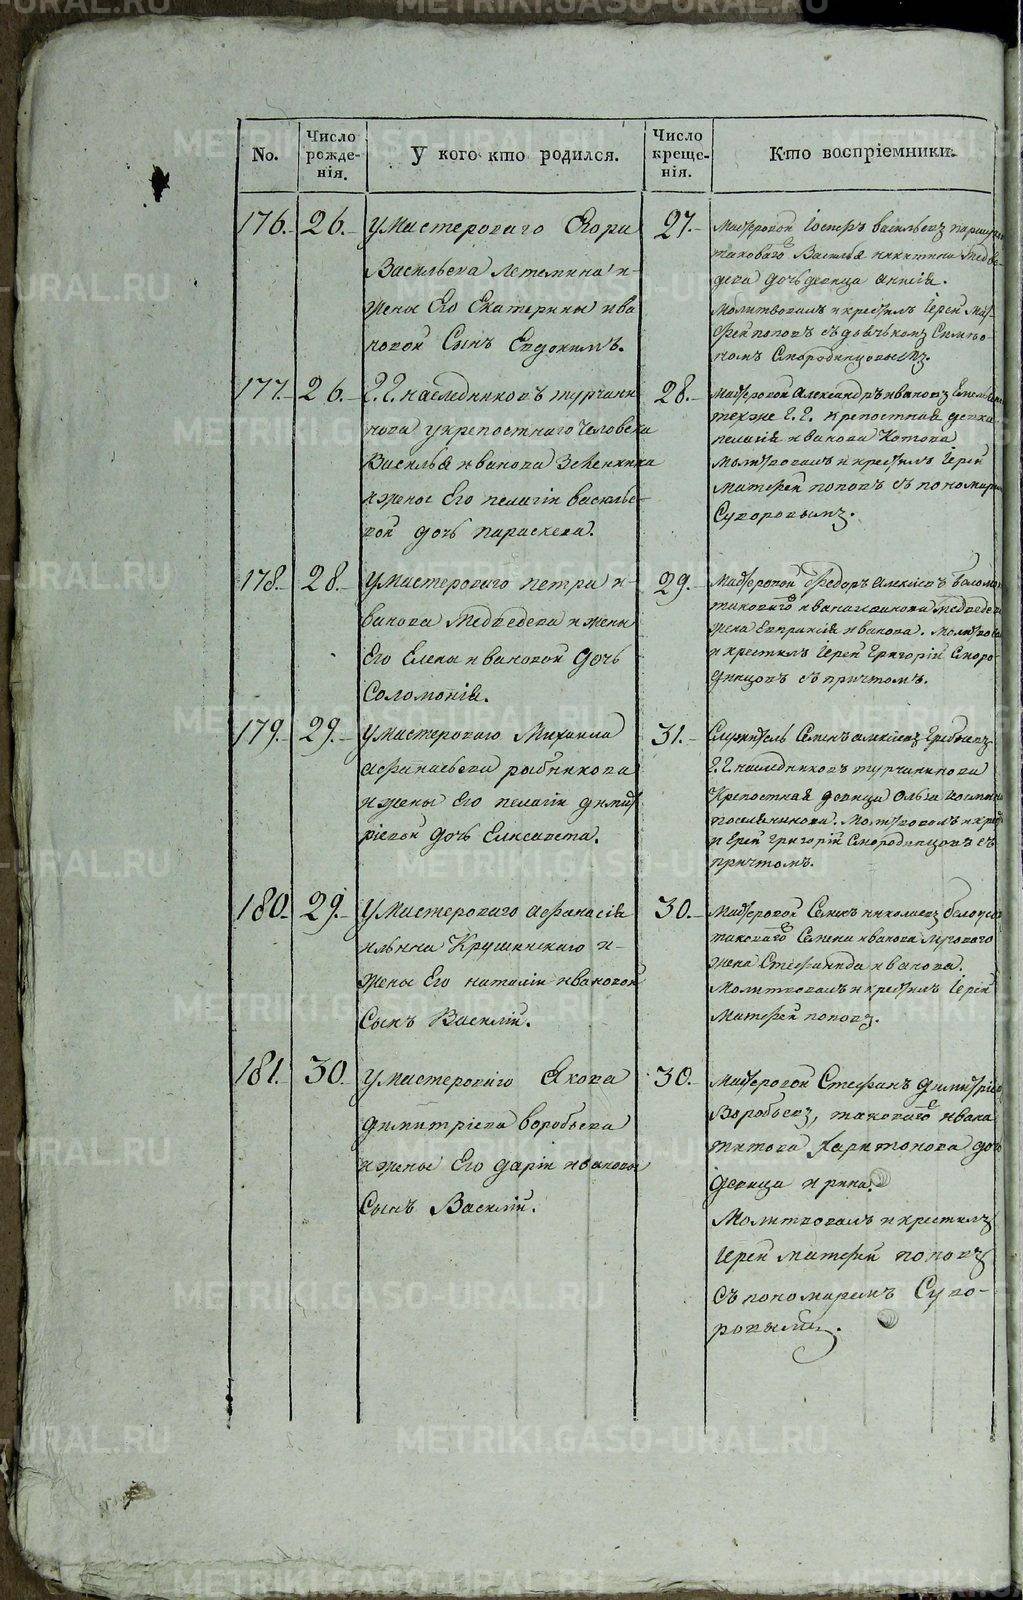 No.
Число рожде- нія.
У кого кто родился.
Число креще- нія.
Кто воспріемники.
176. 26.
у Мастероваго Егора
Васильева Летемина и
жены Его Екатерины ива
новой Сынъ Евдокимъ.
27.
Мастеровой Іосифъ васильевъ
таковаго Василья никитина Медве
дева дочь девица анисія.
Молитвовалъ и крестилъ Іерей Мат
фей поповъ съ дьячькомъ Симео
номъ Смородинцовымъ.
177. 26.
Г.Г. наследниковъ турчани
нова у крепостнаго человека
Василья иванова Зеленкина
и жены Его пелагіи василье-
вой дочь параскева.
28.
Мастеровой александръ ивановъ
техже Г.Г. крепостная девка
пелагія иванова Котова
Молитвовалъ и крестилъ Іерей
Матфей поповъ съ пономаремъ
Суворовымъ.
178. 28.
у Мастероваго петра и-
ванова Медведева и жены
Его Елены ивановой дочь
Соломонія.
29.
Мастеровой Федоръ алексиевъ
таковаго ивана иванова медведева
жена Евпраксія иванова. Молитвова
и крестилъ Іерей Григорій Сморо-
динцовъ съ причтомъ.
179. 29.
у Мастероваго Михаила
афанасьева рыбникова
и жены Его пелагіи димит
ріевой дочь Елисавета.
31.
Служитель Семенъ алексиевъ
Г.Г. наследниковъ турчанинова
Крепостная девица Ольга
Молитвовалъ и крес
и Ерей Григорій Смородинцовъ съ
причтомъ.
180. 29.
у Мастероваго афанасія
ильина Крушинскаго и
жены Его наталіи ивановой
Сынъ Василій.
30.
Мастеровой Семенъ николаевъ белоусов
таковаго Семена иванова
жена Стефанида иванова.
Молитвовалъ и крестилъ Іерей
Матфей поповъ.
181. 30.
у Мастероваго Якова
димитріева воробьева
и жены Его даріи ивановы
Сынъ Василій.
30.
Мастеровой Стефанъ димитріев
Воробьевъ, таковаго ивана
титова Харитонова доч
девица ирина.
Молитвовалъ и крестилъ
Іерей Матфей поповъ
съ пономаремъ Суво-
ровымъ.
METRIKI.GASO-URAL.RU